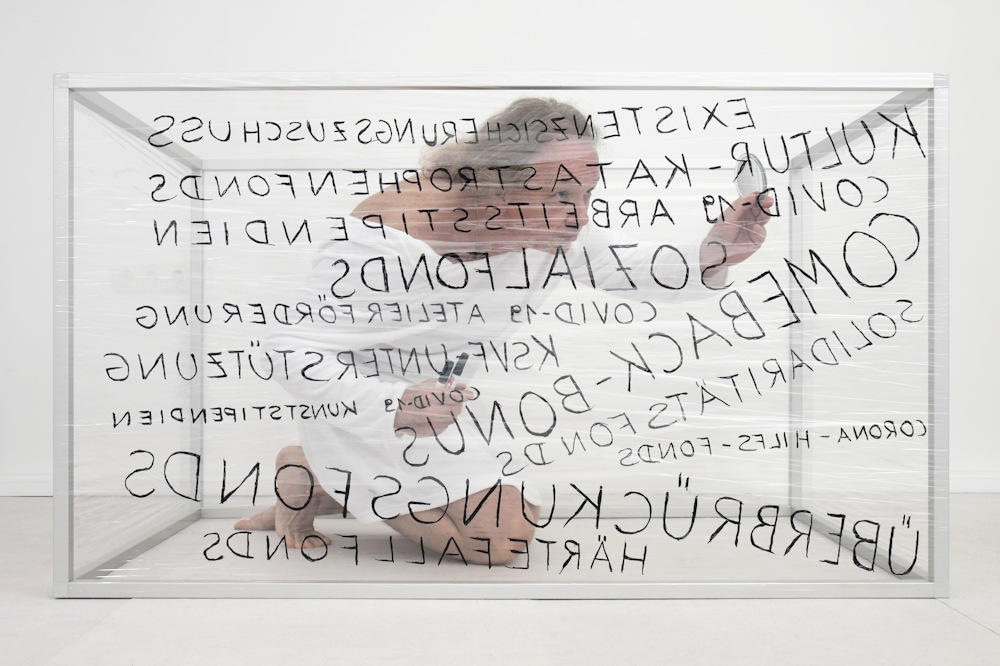 EXISTENZSICHERUNGSZUSCHUSS
KULTUR-KATASTROPHENFONDS
COVID-19 ARBEITSSTIPENDIEN
SOZIALFONDS
COMEBACK-BONUS
COVID-19 ATELIERFÖRDERUNG
KSVF UNTERSTÜTZUNG
SOLIDARITÄTSFONDS
COVID-19 KUNSTSTIPENDIEN
CORONA-HILFS-FONDS
ÜBERBRÜCKUNGSFONDS
HÄRTEFALLFONDS